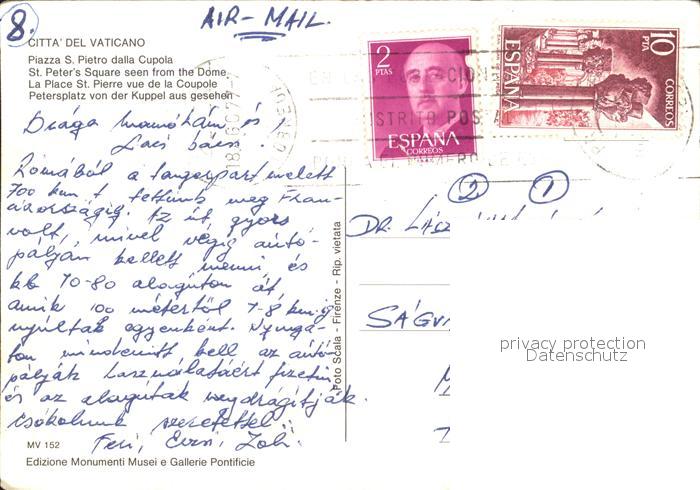 8.
AIR-MAIL.
CITTA' DEL VATICANO
Piazza S. Pietro dalla Cupola
St. Peter's Square seen from the Dome
La Place St. Pierre vue de la Coupole
Petersplatz von der Kuppel aus gesehen
2
PTAS
ESPAÑA
CORREOS
10
PTA
ESPAÑA
CORREOS
Drága Mamókám és
Laci bácsi!
Rómából a tengerpart mellett
700 km-t tettünk meg Fran-
ciaországig. Az út gyors
volt, mivel végig autó-
pályán kellett menni, és
kb 70-80 alagúton át
amik 100 métertől 7-8 km-ig
nyúltak egyenként. Nyuga-
ton mindenütt kell az autó
pályák használatáért fizetni
és az alagutak megdrágítják.
Csókolunk szeretettel:
Feri, Evzsi, Zoli
2 1
DR. LÁSZ
SÁGV
privacy protection
Datenschutz
Foto Scala - Firenze - Rip. vietata
MV 152
Edizione Monumenti Musei e Gallerie Pontificie